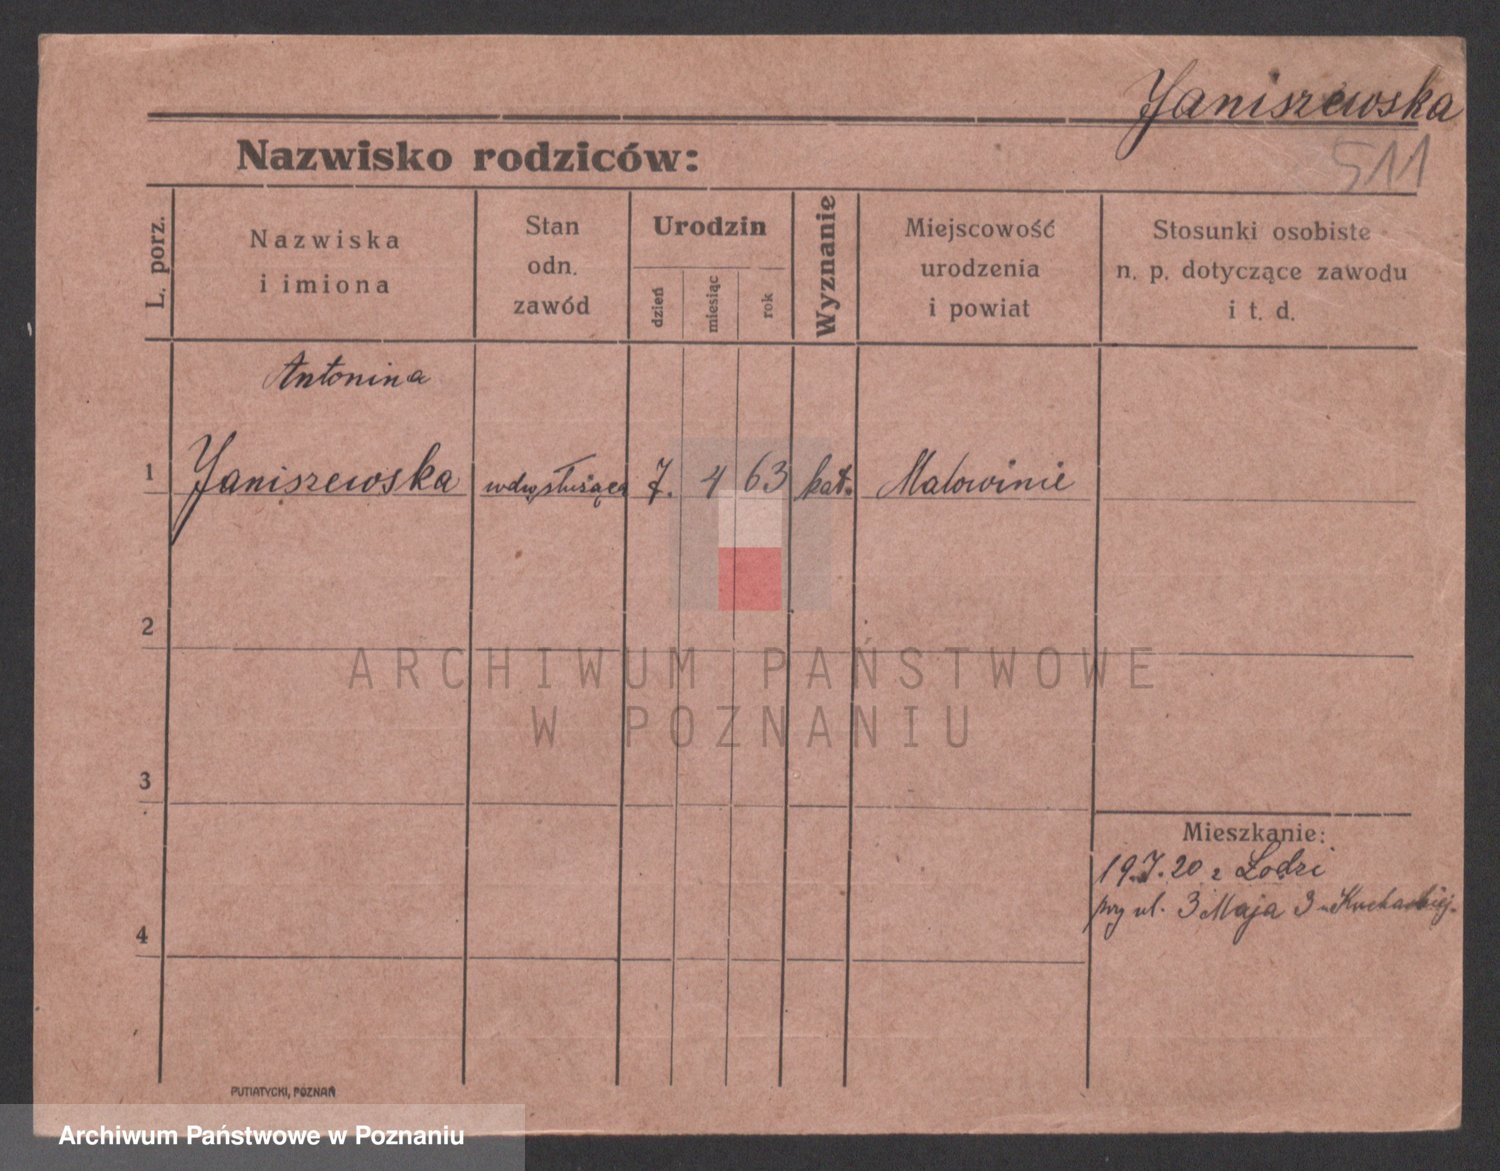 Janiszewska
511
Nazwisko rodziców:
L. porz.
Nazwiska
i imiona
Stan
odn.
zawód
Urodzin
dzień
miesiąc
rok
Wyznanie
Miejscowość
urodzenia
i powiat
Stosunki osobiste
n. p. dotyczące zawodu
i t. d.
Antonina
1 Janiszewska wdw. służąca 7. 4 63 kat. Malowinie
2
ARCHIWUM PAŃSTWOWE
W POZNANIU
3
Mieszkanie:
19.7.20 z Łodzi
przy ul. 3 Maja 3 u Kucharskiej.
4
PUTIATYCKI, POZNAŃ
Archiwum Państwowe w Poznaniu